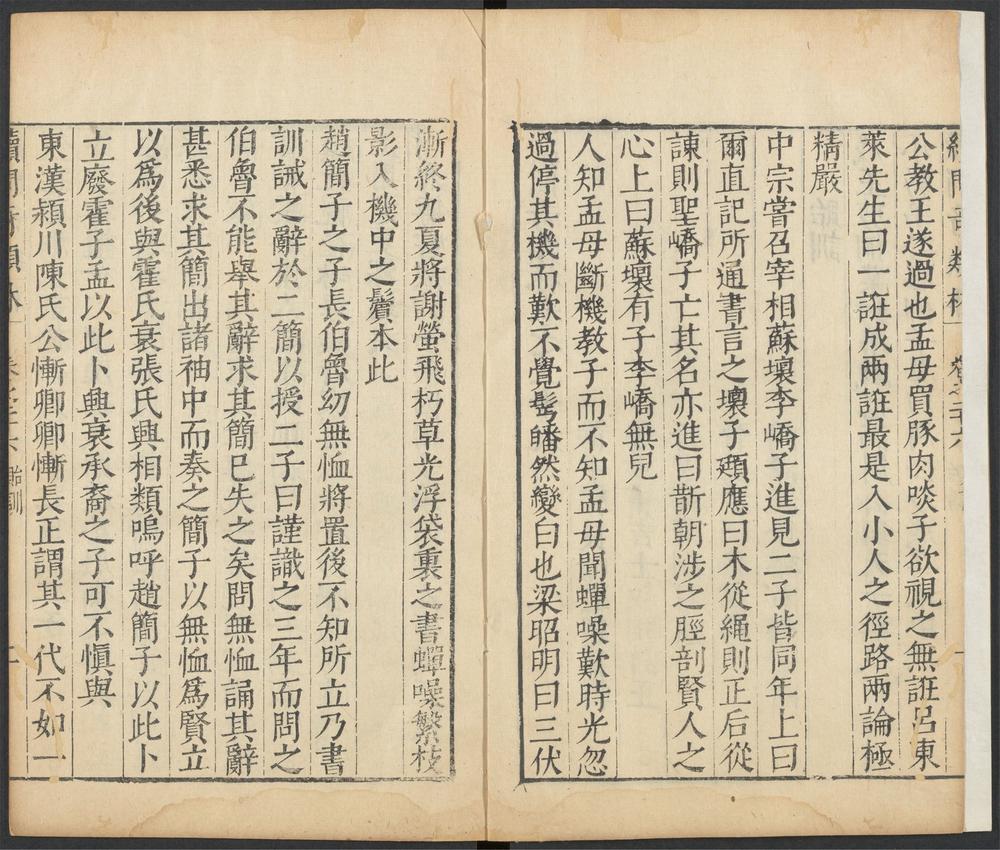 類林
卷之二十六
公教王遂過也孟母買豚肉啖子欲視之無誑呂東
萊先生曰一誑成兩誑最是入小人之徑路兩論極
精嚴
中宗嘗召宰相蘇壞李嶠子進見二子皆同年上曰
爾直記所通書言之壞子頲應曰木從繩則正后從
諫則聖嶠子亡其名亦進曰斮朝涉之脛剖賢人之
心上曰蘇壞有子李嶠無兒
人知孟母斷機教子而不知孟母聞蟬噪歎時光忽
過停其機而歎不覺髩皤然變白也梁昭明曰三伏
漸終九夏將謝螢飛朽草光浮袋裏之書蟬噪繁枝
影入機中之鬢本此
趙簡子之子長伯魯幼無恤將置後不知所立乃書
訓誡之辭於二簡以授二子曰謹識之三年而問之
伯魯不能舉其辭求其簡已失之矣問無恤誦其辭
甚悉求其簡出諸袖中而奏之簡子以無恤爲賢立
以爲後與霍氏衰張氏興相類嗚呼趙簡子以此卜
立廢霍子孟以此卜興衰承裔之子可不慎與
東漢潁川陳氏公慚卿卿慚長正謂其一代不如一
胎訓